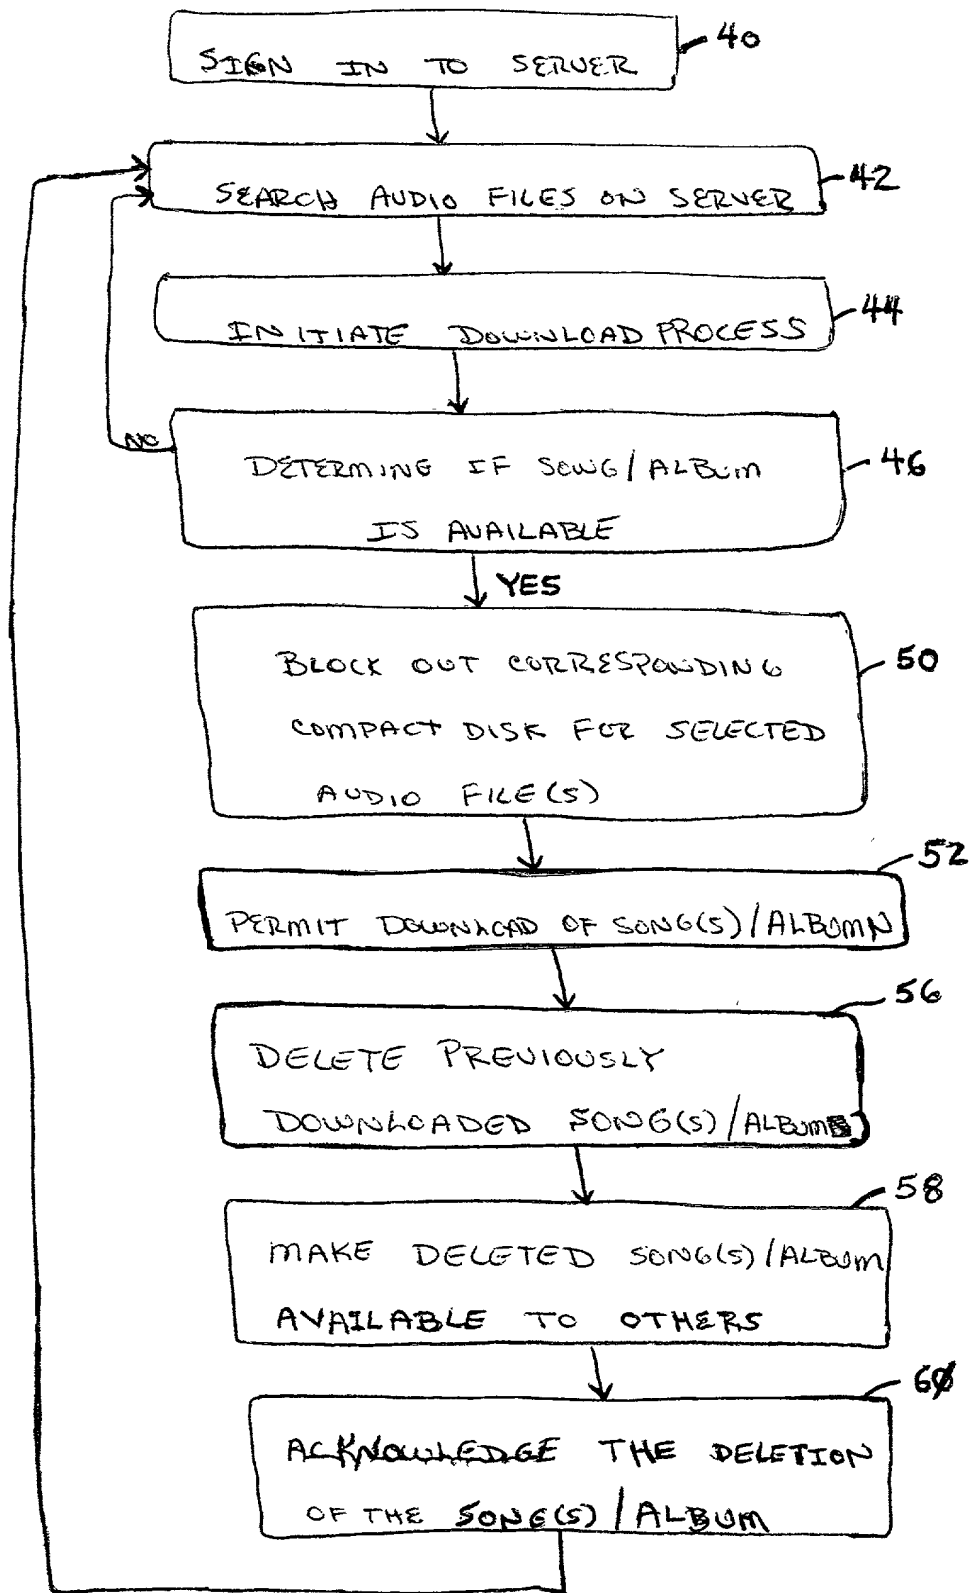 40
SIGN IN TO SERVER
42
SEARCH AUDIO FILES ON SERVER
44
INITIATE DOWNLOAD PROCESS
NO
46
DETERMINE IF SONG/ALBUM
IS AVAILABLE
YES
50
BLOCK OUT CORRESPONDING
COMPACT DISK FOR SELECTED
AUDIO FILE(S)
52
PERMIT DOWNLOAD OF SONG(S)/ALBUMN
56
DELETE PREVIOUSLY
DOWNLOADED SONG(S)/ALBUM
58
MAKE DELETED SONG(S)/ALBUM
AVAILABLE TO OTHERS
60
ACKNOWLEDGE THE DELETION
OF THE SONG(S)/ALBUM